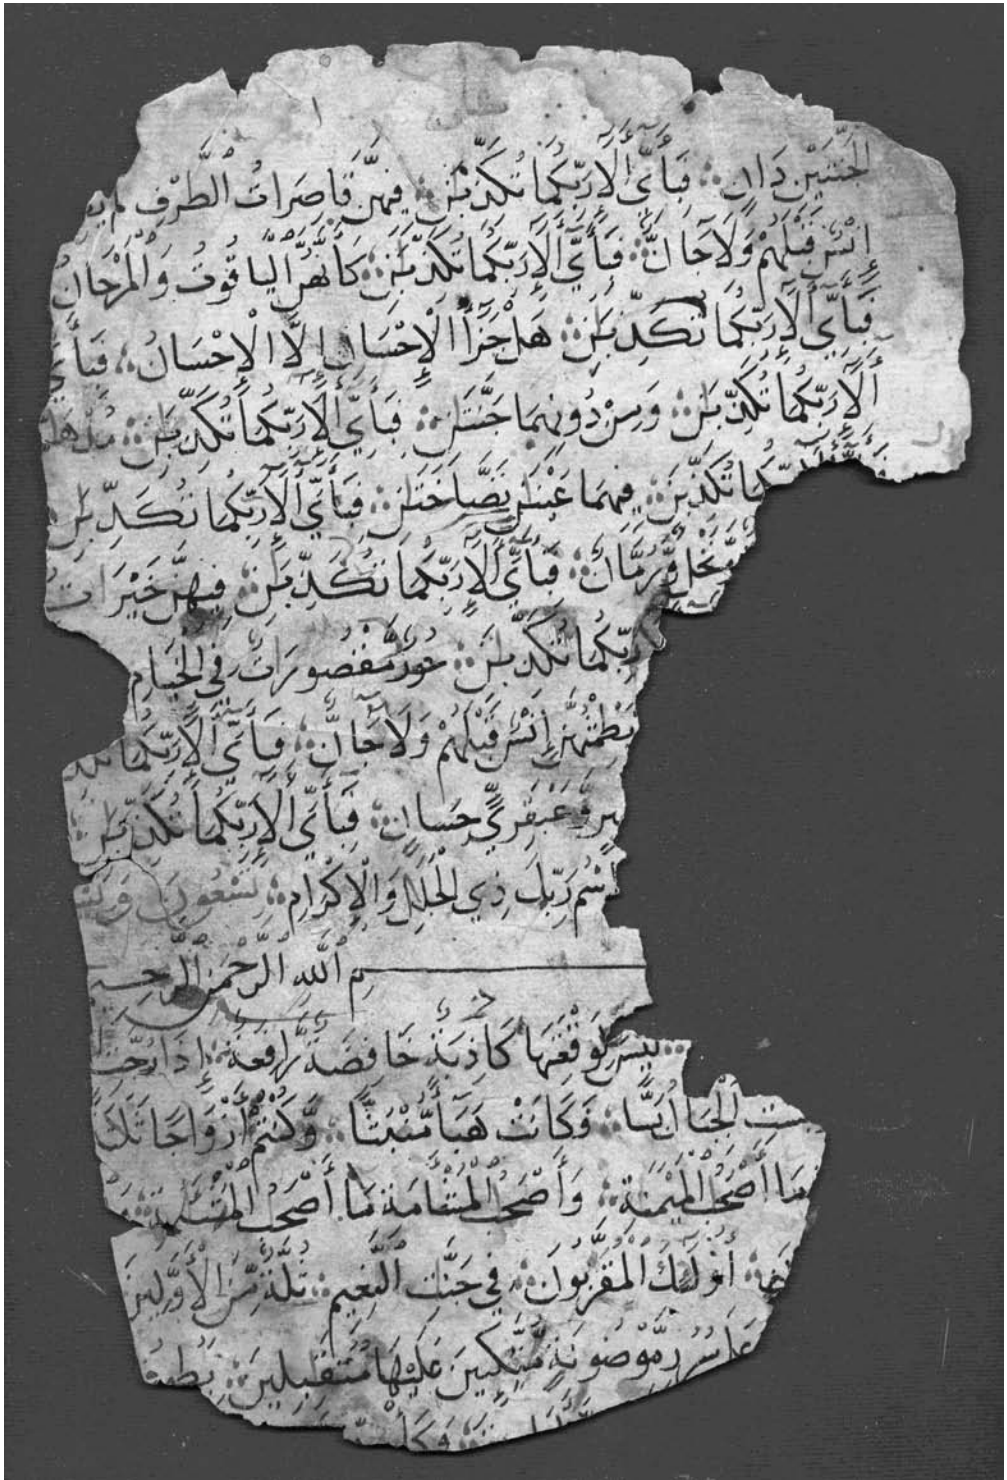 الْجَنَّتَيْنِ دَانٍ فَبِأَيِّ أَلَآءِ رَبِّكُمَا تُكَذِّبَٰنِ فِيهِنَّ قَاصِرَاتُ الطَّرْفِ لَمْ
إِنْسٌ قَبْلَهُمْ وَلَا جَآنٌّ فَبِأَيِّ أَلَآءِ رَبِّكُمَا تُكَذِّبَٰنِ كَأَنَّهُنَّ الْيَاقُوتُ وَالْمَرْجَانُ
فَبِأَيِّ أَلَآءِ رَبِّكُمَا تُكَذِّبَٰنِ هَلْ جَزَآءُ الْإِحْسَانِ إِلَّا الْإِحْسَانُ فَبِأَيِّ
أَلَآءِ رَبِّكُمَا تُكَذِّبَٰنِ وَمِنْ دُونِهِمَا جَنَّتَٰنِ فَبِأَيِّ أَلَآءِ رَبِّكُمَا تُكَذِّبَٰنِ
تُكَذِّبَٰنِ فِيهِمَا عَيْنَٰنِ نَضَّاخَتَٰنِ فَبِأَيِّ أَلَآءِ رَبِّكُمَا تُكَذِّبَٰنِ
وَنَخْلٌ وَّرُمَّانٌ فَبِأَيِّ أَلَآءِ رَبِّكُمَا تُكَذِّبَٰنِ فِيهِنَّ خَيْرَاتٌ
رَبِّكُمَا تُكَذِّبَٰنِ حُورٌ مَّقْصُورَاتٌ فِي الْخِيَامِ
يَطْمِثْهُنَّ إِنْسٌ قَبْلَهُمْ وَلَا جَآنٌّ فَبِأَيِّ أَلَآءِ رَبِّكُمَا
وَّعَبْقَرِيٍّ حِسَانٍ فَبِأَيِّ أَلَآءِ رَبِّكُمَا تُكَذِّبَٰنِ
اسْمُ رَبِّكَ ذِي الْجَلَٰلِ وَالْإِكْرَامِ
اللَّهِ الرَّحْمَٰنِ الرَّحِيمِ
لَيْسَ لِوَقْعَتِهَا كَاذِبَةٌ خَافِضَةٌ رَّافِعَةٌ إِذَا رُجَّتِ
الْجِبَالُ بَسًّا فَكَانَتْ هَبَآءً مُّنْبَثًّا وَّكُنْتُمْ أَزْوَاجًا ثَلَٰثَةً
مَآ أَصْحَٰبُ الْمَيْمَنَةِ وَأَصْحَٰبُ الْمَشْـَٔمَةِ مَآ أَصْحَٰبُ الْمَشْـَٔمَةِ
أُولَٰٓئِكَ الْمُقَرَّبُونَ فِي جَنَّٰتِ النَّعِيمِ ثُلَّةٌ مِّنَ الْأَوَّلِينَ
عَلَىٰ سُرُرٍ مَّوْضُونَةٍ مُّتَّكِـِٔينَ عَلَيْهَا مُتَقَٰبِلِينَ يَطُوفُ